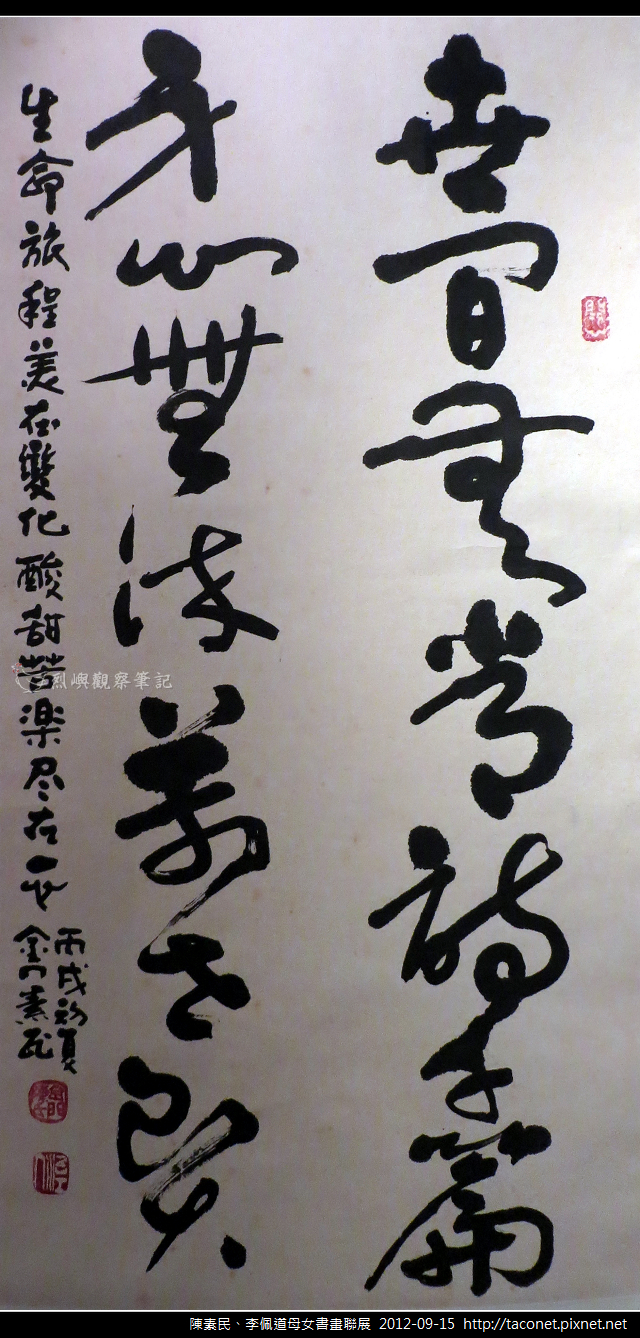 世間無常詩千篇
身心無萬
生命旅程美在變化酸甜苦楽尽在一
丙戌初夏
金門素民
烈嶼觀察筆記
陳素民、李佩道母女書畫聯展 2012-09-15 http://taconet.pixnet.net